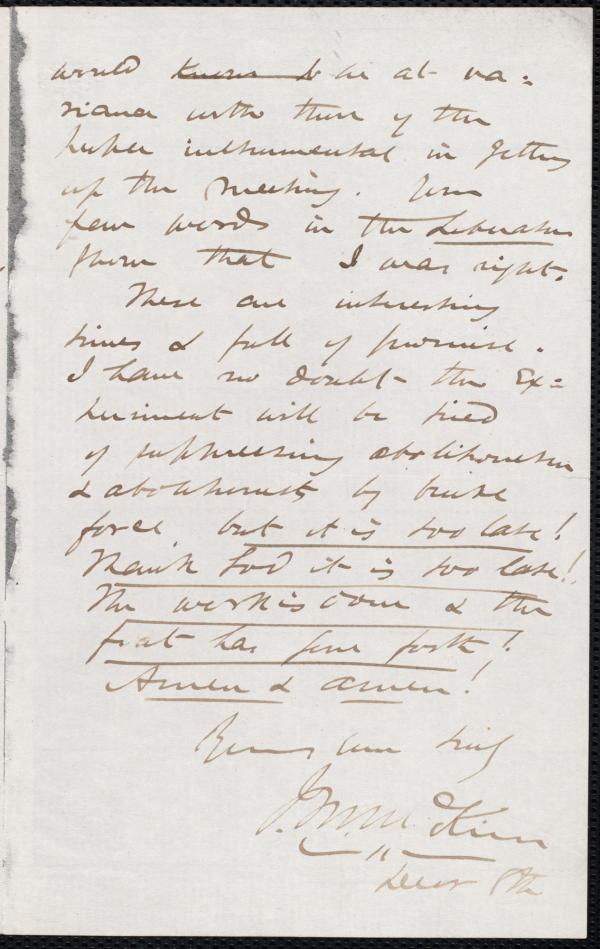 would know to be at va=
riance with those of the
persons instrumental in getting
up the meeting. Your
few words in the Liberator
show that I was right.
These are interesting
times & full of promise.
I have no doubt the Ex=
periment will be tried
of suppressing abolitionism
& abolitionists by brute
force, but it is too late!
Thank God it is too late!
The work is done & the
fiat has gone forth!
Amen & amen!
Yours ever truly
J. M. McKim